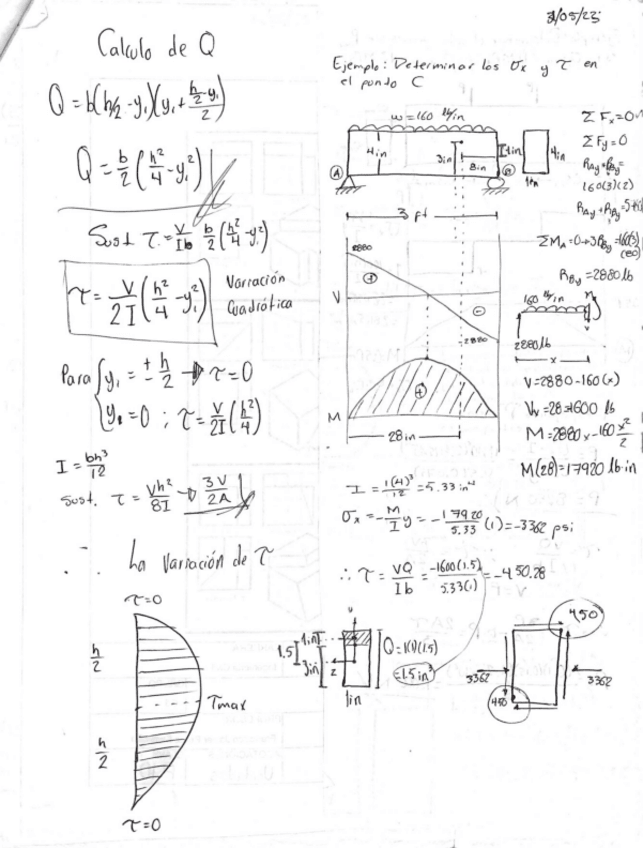 31/05/23
Calculo de Q
Q = b(h/2 - y₁)(y₁ + (h/2 - y₁)/2)
Q = b/2 (h²/4 - y₁²)
Sust τ = V/Ib b/2 (h²/4 - y₁²)
τ = V/2I (h²/4 - y₁²) Varración Cuadrática
Para { y₁ = ± h/2 → τ = 0
y₁ = 0 ; τ = V/2I (h²/4)
I = bh³/12
sust. τ = Vh²/8I → 3V/2A
∴ La Variación de τ
τ=0
h/2
τmax
h/2
τ=0
Ejemplo: Determinar los σx y τ en
el punto C
w=160 lb/in
4in
3in
1in
8in
4in
1in
A
B
3 ft
ΣFx=0
ΣFy=0
RAy+RBy=
160(3)(12)
ΣMA=0
RBy=2880lb
2880
V
+
-
-2880
M
+
28in
160 lb/in
M
V
2880lb
x
V=2880-160(x)
M=2880x-160x²/2
M(28)=17920 lb·in
I = 1(4)³/12 = 5.33 in⁴
σx = -M/I y = -17920/5.33 (1) = -3362 psi
∴ τ = VQ/Ib = -1600(1.5)/5.33(1) = -450.28
1.5
1in
3in
z
1in
Q=1(1)(1.5)
=1.5in³
450
3362
3362
450